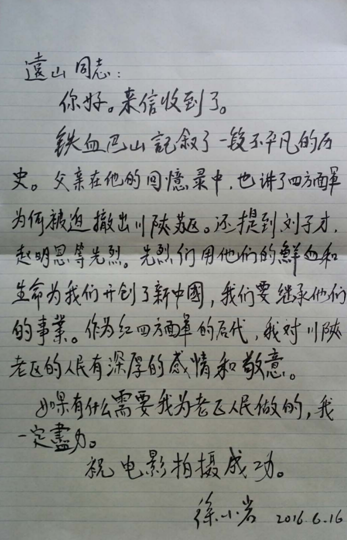 遠山同志：
你好。来信收到了。
铁血巴山記叙了一段不平凡的历
史。父亲在他的回憶录中，也讲了四方面軍
为何被迫撤出川陝苏区。还提到刘子才，
赵明恩等先烈。先烈们用他们的鮮血和
生命为我们开创了新中國，我们要继承他们
的事業。作为红四方面軍的后代，我对川陝
老区的人民有深厚的感情和敬意。
如果有什么需要我为老区人民做的，我
一定盡力。
祝电影拍摄成功。
徐小岩 2016.6.16